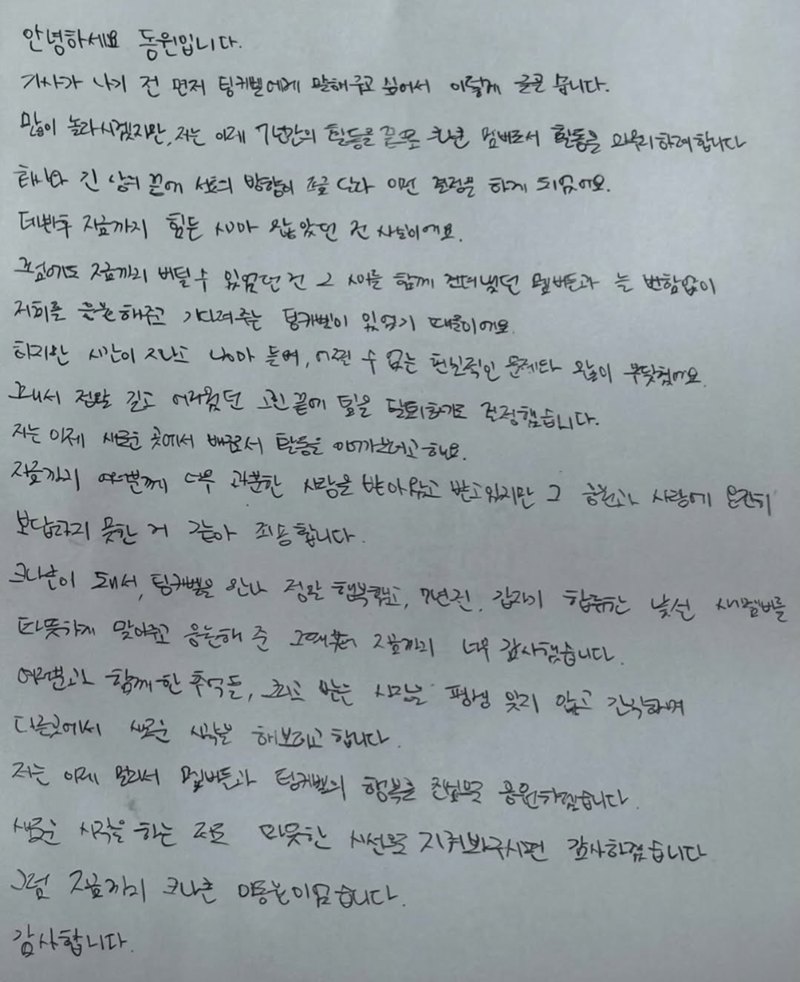 안녕하세요 동원입니다.
기사가 나기 전 먼저 팅커벨에게 말해주고 싶어서 이렇게 글을 씁니다.
많이 놀라시겠지만, 저는 이제 7년간의 활동을 끝으로 크나큰 멤버로서 활동을 마무리하려합니다
회사와 긴 상의 끝에 서로의 방향이 조금 달라 이런 결정을 하게 되었어요.
데뷔후 지금까지 힘든 시간이 많았던 건 사실이에요.
그럼에도 지금까지 버틸 수 있었던 건 그 시간을 함께 견뎌냈던 멤버들과 늘 변함없이
저희를 응원해주고 기다려주는 팅커벨이 있었기 때문이에요.
하지만 시간이 지나고 나이 들어, 어쩔 수 없는 현실적인 문제와 많이 부딪혔어요.
그래서 정말 길고 어려웠던 고민 끝에 팀을 탈퇴하기로 결정했습니다.
저는 이제 새로운 곳에서 배우로서 활동을 이어가보려고해요.
지금까지 여러분께 너무 과분한 사랑을 받아왔고 받고있지만 그 응원과 사랑에 온전히
보답하지 못한 거 같아 죄송합니다.
크나큰이 돼서, 팅커벨을 만나 정말 행복했고, 7년전, 갑자기 합류한 낯선 새멤버를
따뜻하게 맞아주고 응원해 준 그때부터 지금까지 너무 감사했습니다.
여러분과 함께한 추억들, 그리고 받은 사랑을 평생 잊지 않고 간직하며
다른곳에서 새로운 시작을 해보려고 합니다.
저는 이제 멀리서 멤버들과 팅커벨의 행복을 진심으로 응원하겠습니다.
새로운 시작을 하는 저를 따뜻한 시선으로 지켜봐주시면 감사하겠습니다
그럼 지금까지 크나큰 이동원이었습니다.
감사합니다.